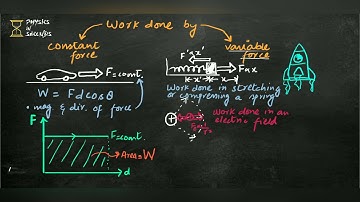 PHYSICS
IN
SECONDS
Work done by
constant
force
variable
force
F=const.
F'αx'
Fαx
x'
x
W = Fd cosθ
• mag & dir. of force
Work done in stretching
or compressing a spring
work done in an
electric field
F
F=const.
Area=W
d